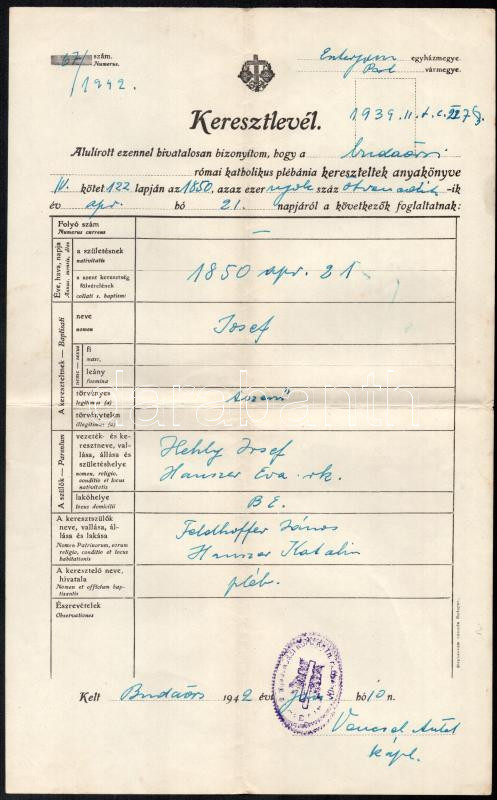 67/ szám.
Numerus.
1942.
egyházmegye.
vármegye.
1939. II. t. c.
Keresztlevél.
Alulírott ezennel hivatalosan bizonyítom, hogy a budaörsi
római katholikus plébánia kereszteltek anyakönyve
IV. kötet 122 lapján az 1850, azaz ezer nyolc száz ötvenedik -ik
év apr. hó 21. napjáról a következők foglaltatnak:
Folyó szám
Numerus currens
—
Éve, hava, napja
Annus, mensis, dies
a születésnek
nativitatis
a szent keresztség
fölvételének
collati s. baptismi
1850 apr. 21
A keresztelnek — Baptisati
neve
nomen
Josef
neme — sexus
fi
masc.
leány
foemina
törvényes
legitimus (a)
törvénytelen
illegitimus (a)
A szülők — Parentum
vezeték- és ke-
resztneve, vallá-
sa, állása és
születéshelye
nomen, religio,
conditio et locus
nativitatis
Hehly Josef
Hauszer Eva rk.
lakóhelye
locus domicilii
BE.
A keresztszülők
neve, vallása, ál-
lása és lakása
Nomen Patrinorum, eorum
religio, conditio et locus
habitationis
Feldhoffer János
Hauszer Katalin
A keresztelő neve,
hivatala
Nomen et officium bap-
tisantis
pléb.
Észrevételek
Observationes
Kelt Budaörs 1942 évi hó 10 n.
Vencsel Antal
kápl.
darabanth